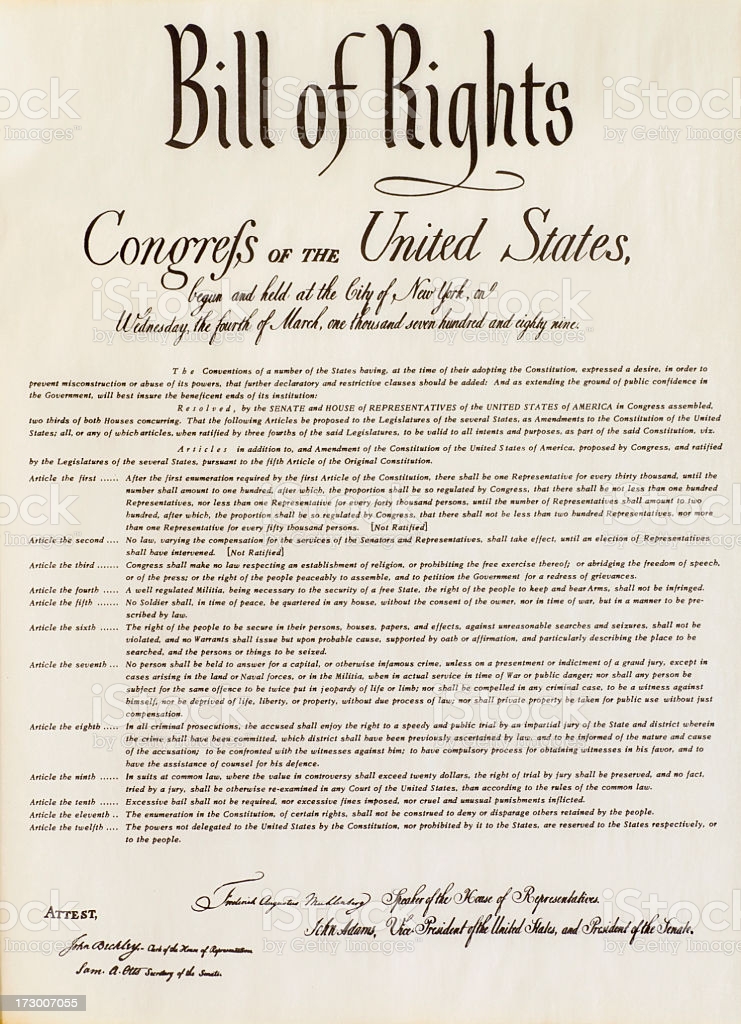 Bill of Rights
Congreſs OF THE United States,
begun and held at the City of New York, on
Wednesday, the fourth of March, one thousand seven hundred and eighty nine.
The Conventions of a number of the States having, at the time of their adopting the Constitution, expressed a desire, in order to
prevent misconstruction or abuse of its powers, that further declaratory and restrictive clauses should be added: And as extending the ground of public confidence in
the Government, will best insure the beneficent ends of its institution:
Resolved, by the SENATE and HOUSE of REPRESENTATIVES of the UNITED STATES of AMERICA in Congress assembled,
two thirds of both Houses concurring. That the following Articles be proposed to the Legislatures of the several States, as Amendments to the Constitution of the United
States; all, or any of which articles, when ratified by three fourths of the said Legislatures, to be valid to all intents and purposes, as part of the said Constitution, viz.
Articles in addition to, and Amendment of the Constitution of the United States of America, proposed by Congress, and ratified
by the Legislatures of the several States, pursuant to the fifth Article of the Original Constitution.
Article the first ...... After the first enumeration required by the first Article of the Constitution, there shall be one Representative for every thirty thousand, until the
number shall amount to one hundred, after which, the proportion shall be so regulated by Congress, that there shall be not less than one hundred
Representatives, nor less than one Representative for every forty thousand persons, until the number of Representatives shall amount to two
hundred, after which, the proportion shall be so regulated by Congress, that there shall not be less than two hundred Representatives, nor more
than one Representative for every fifty thousand persons. [Not Ratified]
Article the second .... No law, varying the compensation for the services of the Senators and Representatives, shall take effect, until an election of Representatives
shall have intervened. [Not Ratified]
Article the third ...... Congress shall make no law respecting an establishment of religion, or prohibiting the free exercise thereof; or abridging the freedom of speech,
or of the press; or the right of the people peaceably to assemble, and to petition the Government for a redress of grievances.
Article the fourth .... A well regulated Militia, being necessary to the security of a free State, the right of the people to keep and bear Arms, shall not be infringed.
Article the fifth ...... No Soldier shall, in time of peace, be quartered in any house, without the consent of the owner, nor in time of war, but in a manner to be pre-
scribed by law.
Article the sixth ...... The right of the people to be secure in their persons, houses, papers, and effects, against unreasonable searches and seizures, shall not be
violated, and no Warrants shall issue but upon probable cause, supported by oath or affirmation, and particularly describing the place to be
searched, and the persons or things to be seized.
Article the seventh ... No person shall be held to answer for a capital, or otherwise infamous crime, unless on a presentment or indictment of a grand jury, except in
cases arising in the land or Naval forces, or in the Militia, when in actual service in time of War or public danger; nor shall any person be
subject for the same offence to be twice put in jeopardy of life or limb; nor shall be compelled in any criminal case, to be a witness against
himself, nor be deprived of life, liberty, or property, without due process of law; nor shall private property be taken for public use without just
compensation.
Article the eighth ..... In all criminal prosecutions, the accused shall enjoy the right to a speedy and public trial by an impartial jury of the State and district wherein
the crime shall have been committed, which district shall have been previously ascertained by law, and to be informed of the nature and cause
of the accusation; to be confronted with the witnesses against him; to have compulsory process for obtaining witnesses in his favor, and to
have the assistance of counsel for his defence.
Article the ninth ...... In suits at common law, where the value in controversy shall exceed twenty dollars, the right of trial by jury shall be preserved, and no fact,
tried by a jury, shall be otherwise re-examined in any Court of the United States, than according to the rules of the common law.
Article the tenth ..... Excessive bail shall not be required, nor excessive fines imposed, nor cruel and unusual punishments inflicted.
Article the eleventh .. The enumeration in the Constitution, of certain rights, shall not be construed to deny or disparage others retained by the people.
Article the twelfth .... The powers not delegated to the United States by the Constitution, nor prohibited by it to the States, are reserved to the States respectively, or
to the people.
Frederick Augustus Muhlenberg Speaker of the House of Representatives.
ATTEST,
John Adams, Vice-President of the United States, and President of the Senate.
John Beckley - Clerk of the House of Representatives
Sam. A. Otis Secretary of the Senate.
iStock
by Getty Images
173007055